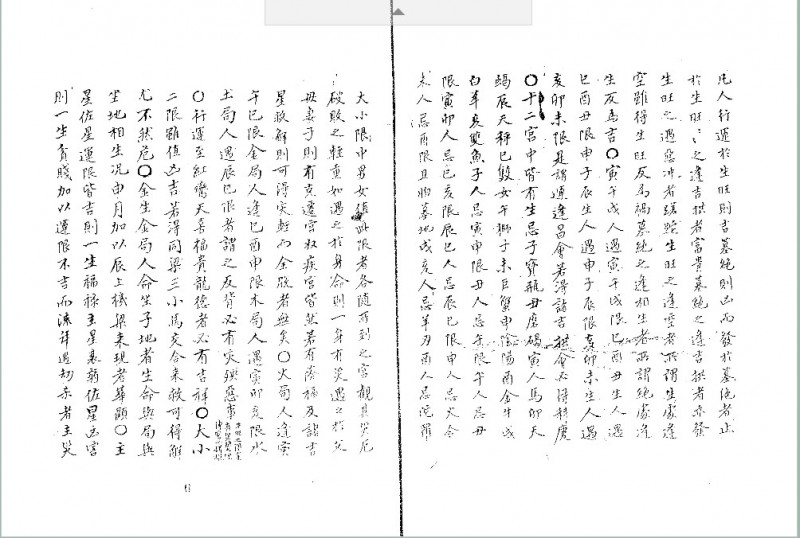 凡人行運於生旺則吉墓絕則凶而發於墓絕者止
於生旺〻之逢吉拱者富貴墓絕之逢吉拱者亦發
生旺之遇惡冲者緩跎生旺之逢空者所謂生處逢
空雖得生旺反為禍墓絕之逢相生者所謂絕處逢
生反為吉〇寅午戌人遇寅午戌限巳酉丑生人遇
巳酉丑限申子辰生人遇申子辰限亥卯未生人遇
亥卯未限是謂運逢昌會若得諸吉拱會必得科慶
〇十二宮中皆有生忌子寶瓶丑磨碣寅人馬卯天
蝎辰天秤巳雙女午獅子未巨蟹申陰陽酉金牛戌
白羊亥雙魚子人忌寅申限丑人忌丑限午人忌丑
限寅卯人忌巳亥限辰巳人忌辰巳限申人忌火令
未人忌酉限丑為墓地戌亥人忌羊刃酉人忌陀羅
大小限中男女值此限者各隨所到之宮觀其災厄
破敗之輕重如遇之於身命則一身有災遇之於父
母妻子則有哀遷宮奴疾宮皆然若有蔭福及諸吉
星救解則可得災輕而全敗者無矣〇火局人逢寅
午巳限金局人逢巳酉申限木局人遇寅卯亥限水
土局人遇辰巳限者謂之反背必有災殃惡事
〇行運至紅鸞天喜福貴龍德者必有吉祥〇大小
二限雖值凶吉若得同梁三小馬交合來救可得解
尤不然危〇金生金局人命坐子地者生命與局與
坐地相生況由月加以辰上機梁來現者華顯〇主
星佐星運限皆吉則一生福祿主星惡弱佐星凶害
則一生貧賤加以運限不吉而流祥遇劫杀者主災
6